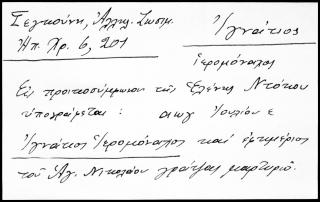 Σεγκούνη, Ἀλληλ. Ζωσιμ.
Ἠπ. Χρ. 6, 201
Ἰγνάτιος
ἱερομόναχος
Εἰς προικοσύμφωνον τῆς Ἑλένης Ντόκου
ὑπογράφεται: αωγ Ἰουλίου ε
Ἰγνάτιος Ἱερομόναχος καὶ ἐφημέριος
τοῦ Ἁγ. Νικολάου γράψας μαρτυρῶ.